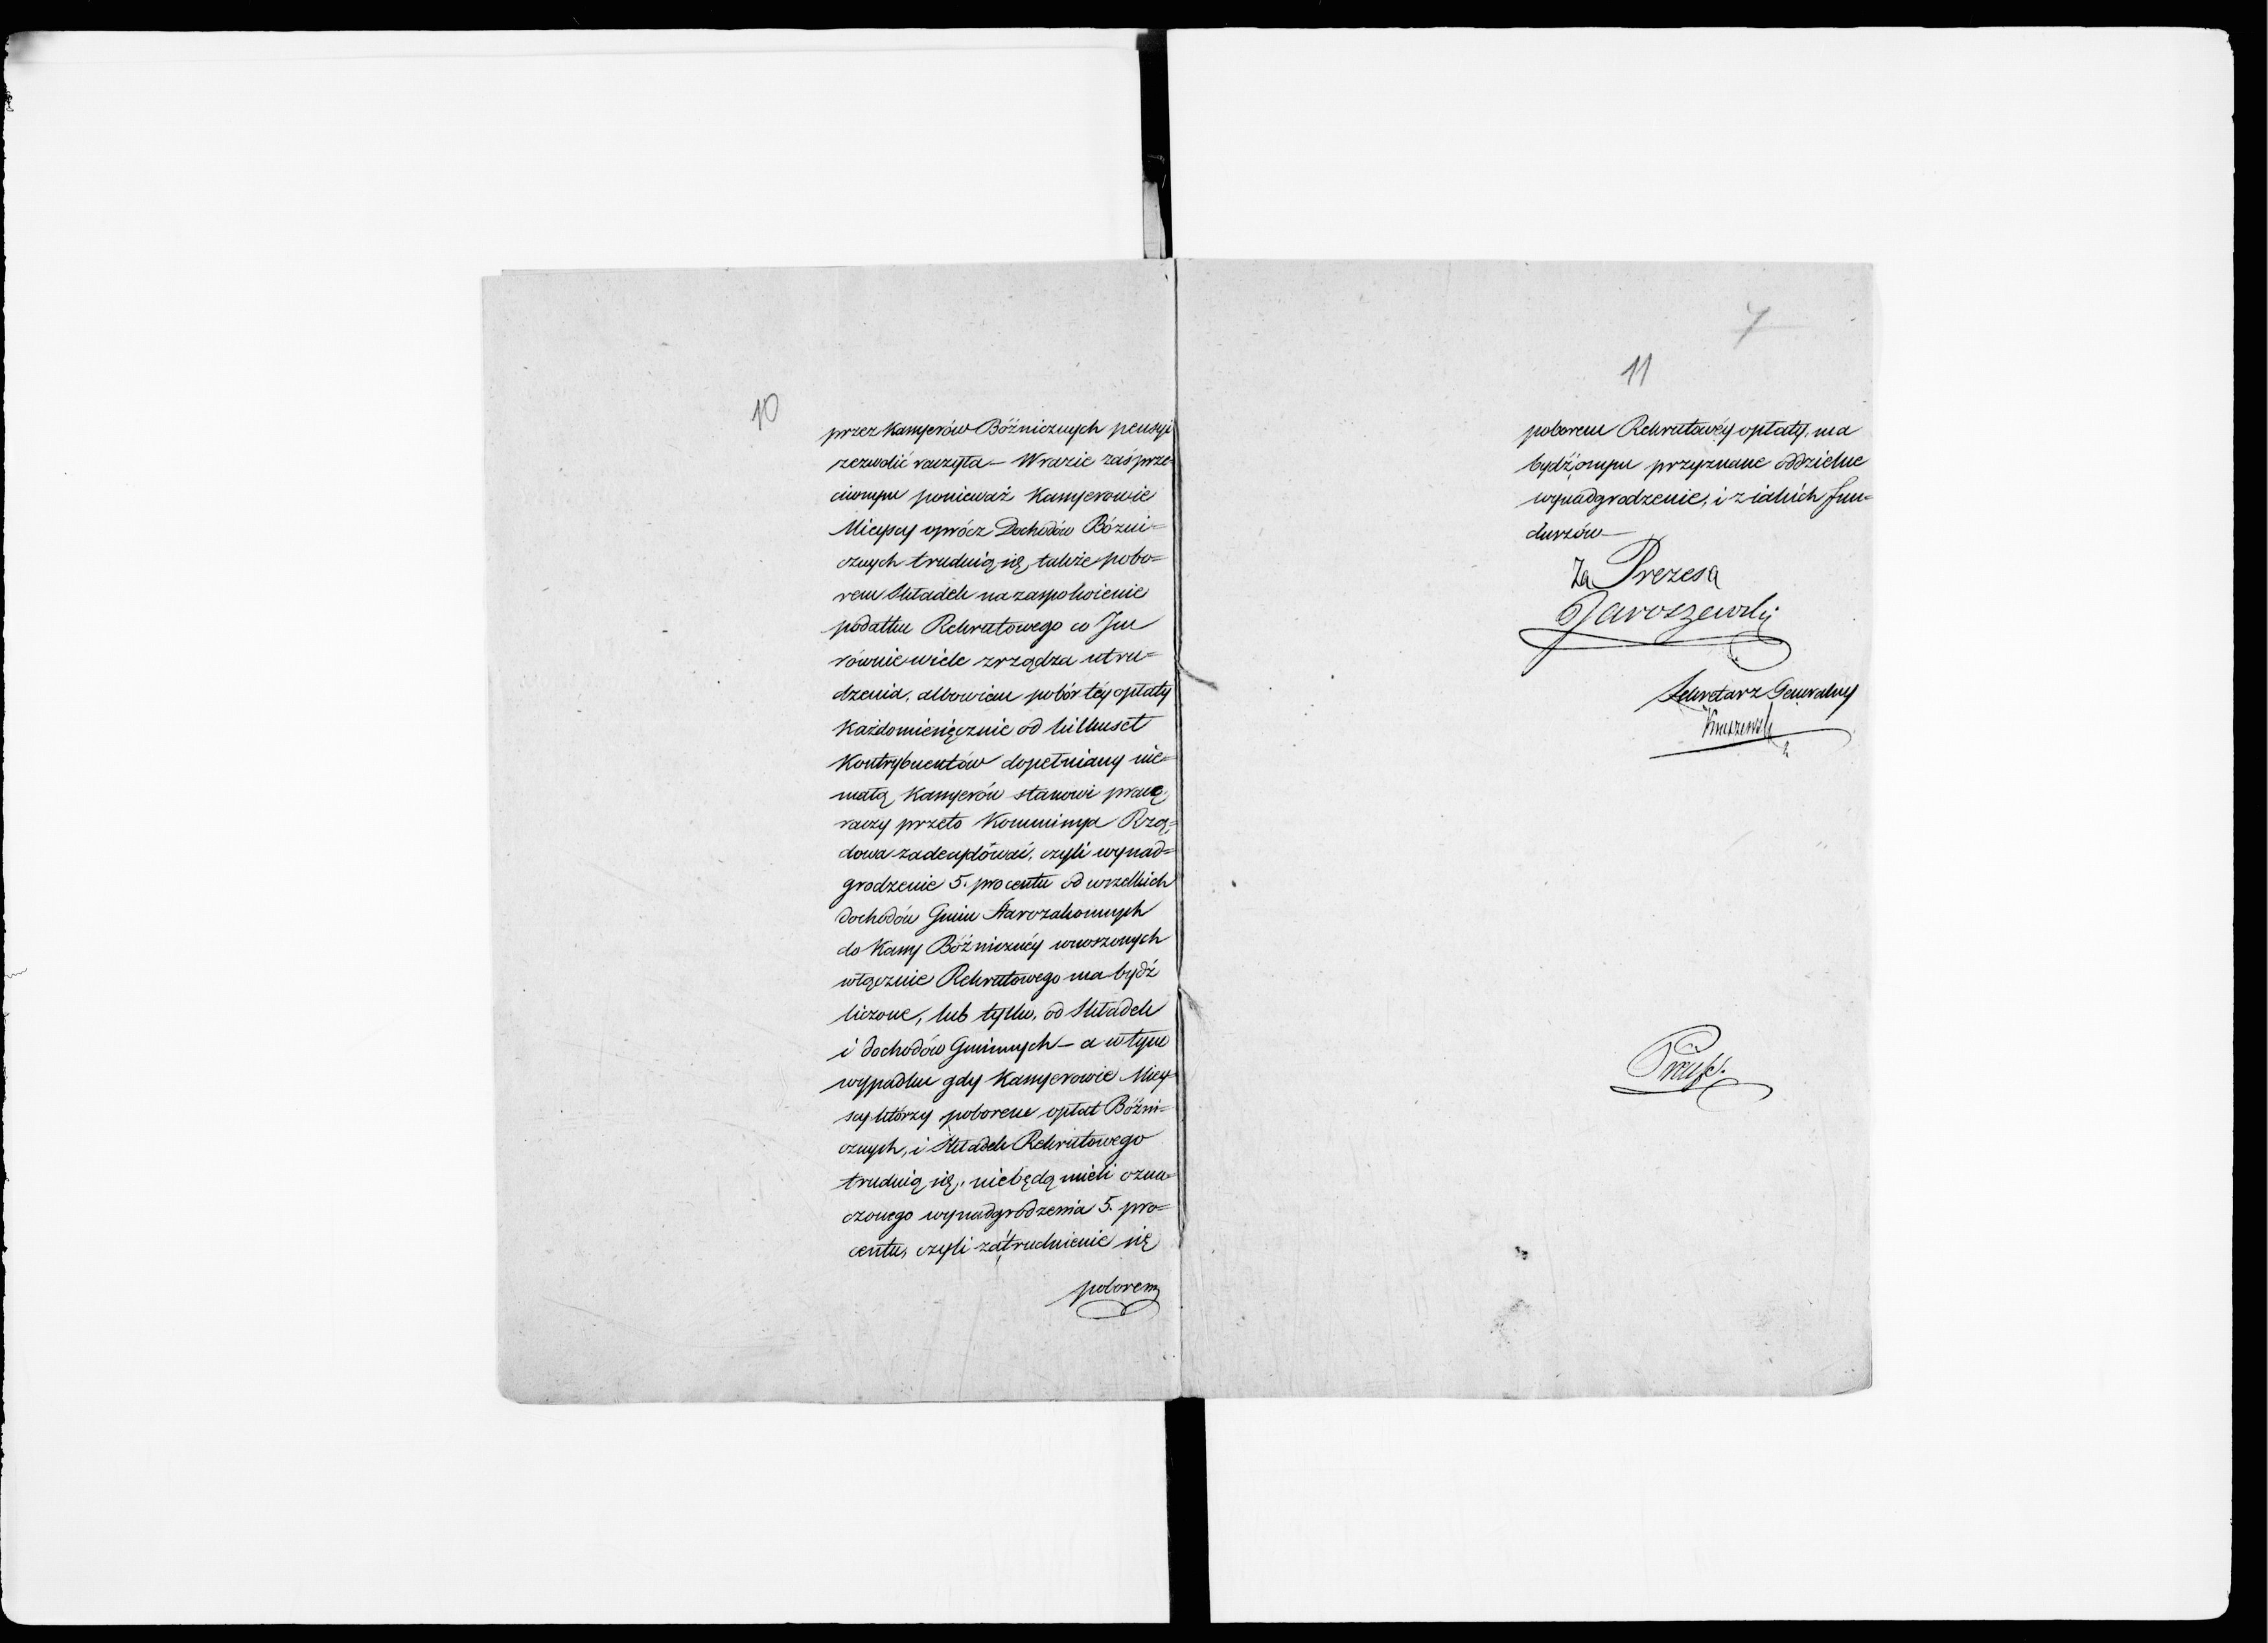 10
przez Kassyerów Bóźnicznych pensyi
zezwolić raczyła – W razie zaś prze-
ciwnym ponieważ Kassyerowie
Mieyscy oprócz Dochodów Bóżni=
cznych trudnią się także pobo=
rem Składek na zaspokoienie
podatku Rekrutowego co Im
równie wiele zrządza utru=
dzenia, albowiem pobór téy opłaty
Każdomiesięcznie od kilkuset
Kontrybuentów dopełniany nie=
małą Kassyerów stanowi pracę,
raczy przeto Kommissya Rzą=
dowa zadecydować, czyli wynad=
grodzenie 5. procentu od wszelkich
dochodów Gmin Starozakonnych
do Kassy Bóźniczney wnoszonych
włącznie Rekrutowego ma bydź
liczone, lub tylko, od Składek
i dochodów Gminnych – a w tym
wypadku gdy Kassyerowie Miey
scy którzy poborem opłat Bóżni=
cznych, i Składek Rekrutowego
trudnią się, niebędą mieli ozna=
czonego wynadgrodzenia 5. pro=
centu, czyli zatrudnienie się
poborem
7
11
poborem Rekrutowéy opłaty, ma
bydź onym przyznane oddzielne
wynadgrodzenie, i z iakich fun=
duszów –
Za Prezesa
Jaroszewski
Sekretarz Generalny